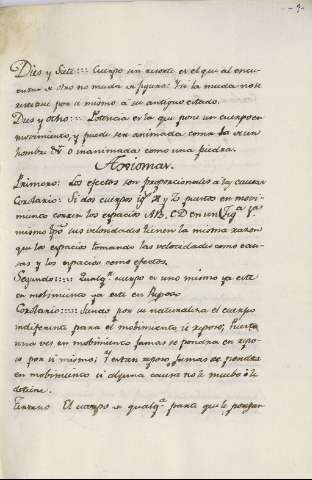 3.
Dies y Siete::: Cuerpo sin resorte es el que al encu-
entro de otro no muda de figura: Y si la muda no se
restituie por si mismo à su antiguo estado.
Dies y ôcho::: Potencia es la que pone un cuerpo en
movimiento, y puede ser animada como la de un
hombre &c. o inanimada como una piedra.
Axiomas.
Primero: Los efectos son proporcionales a las causas
Corolario: Si dos cuerpos A y B puestos en movi-
miento corren los espacios AB, CD en un Fig.a 1.a
mismo tpo sus velocidades tienen la misma razon
que los espacios tomando las velocidades como cau-
sas y los espacios como efectos.
Segundo:::: Qualq.a cuerpo es uno mismo ya esté
en movimiento ya esté en Reposo
Corolario:::: Siendo por su naturaleza el cuerpo
indiferente para el movimiento, û reposo; puesto
una ves en movimiento jamas se pondra en repo-
so por si mismo; Y estan reposo Jamas se pondra
en movimiento si alguna causa no le muebe ô le
detiene.
Tercero El cuerpo a qualq.a parte que le pongan